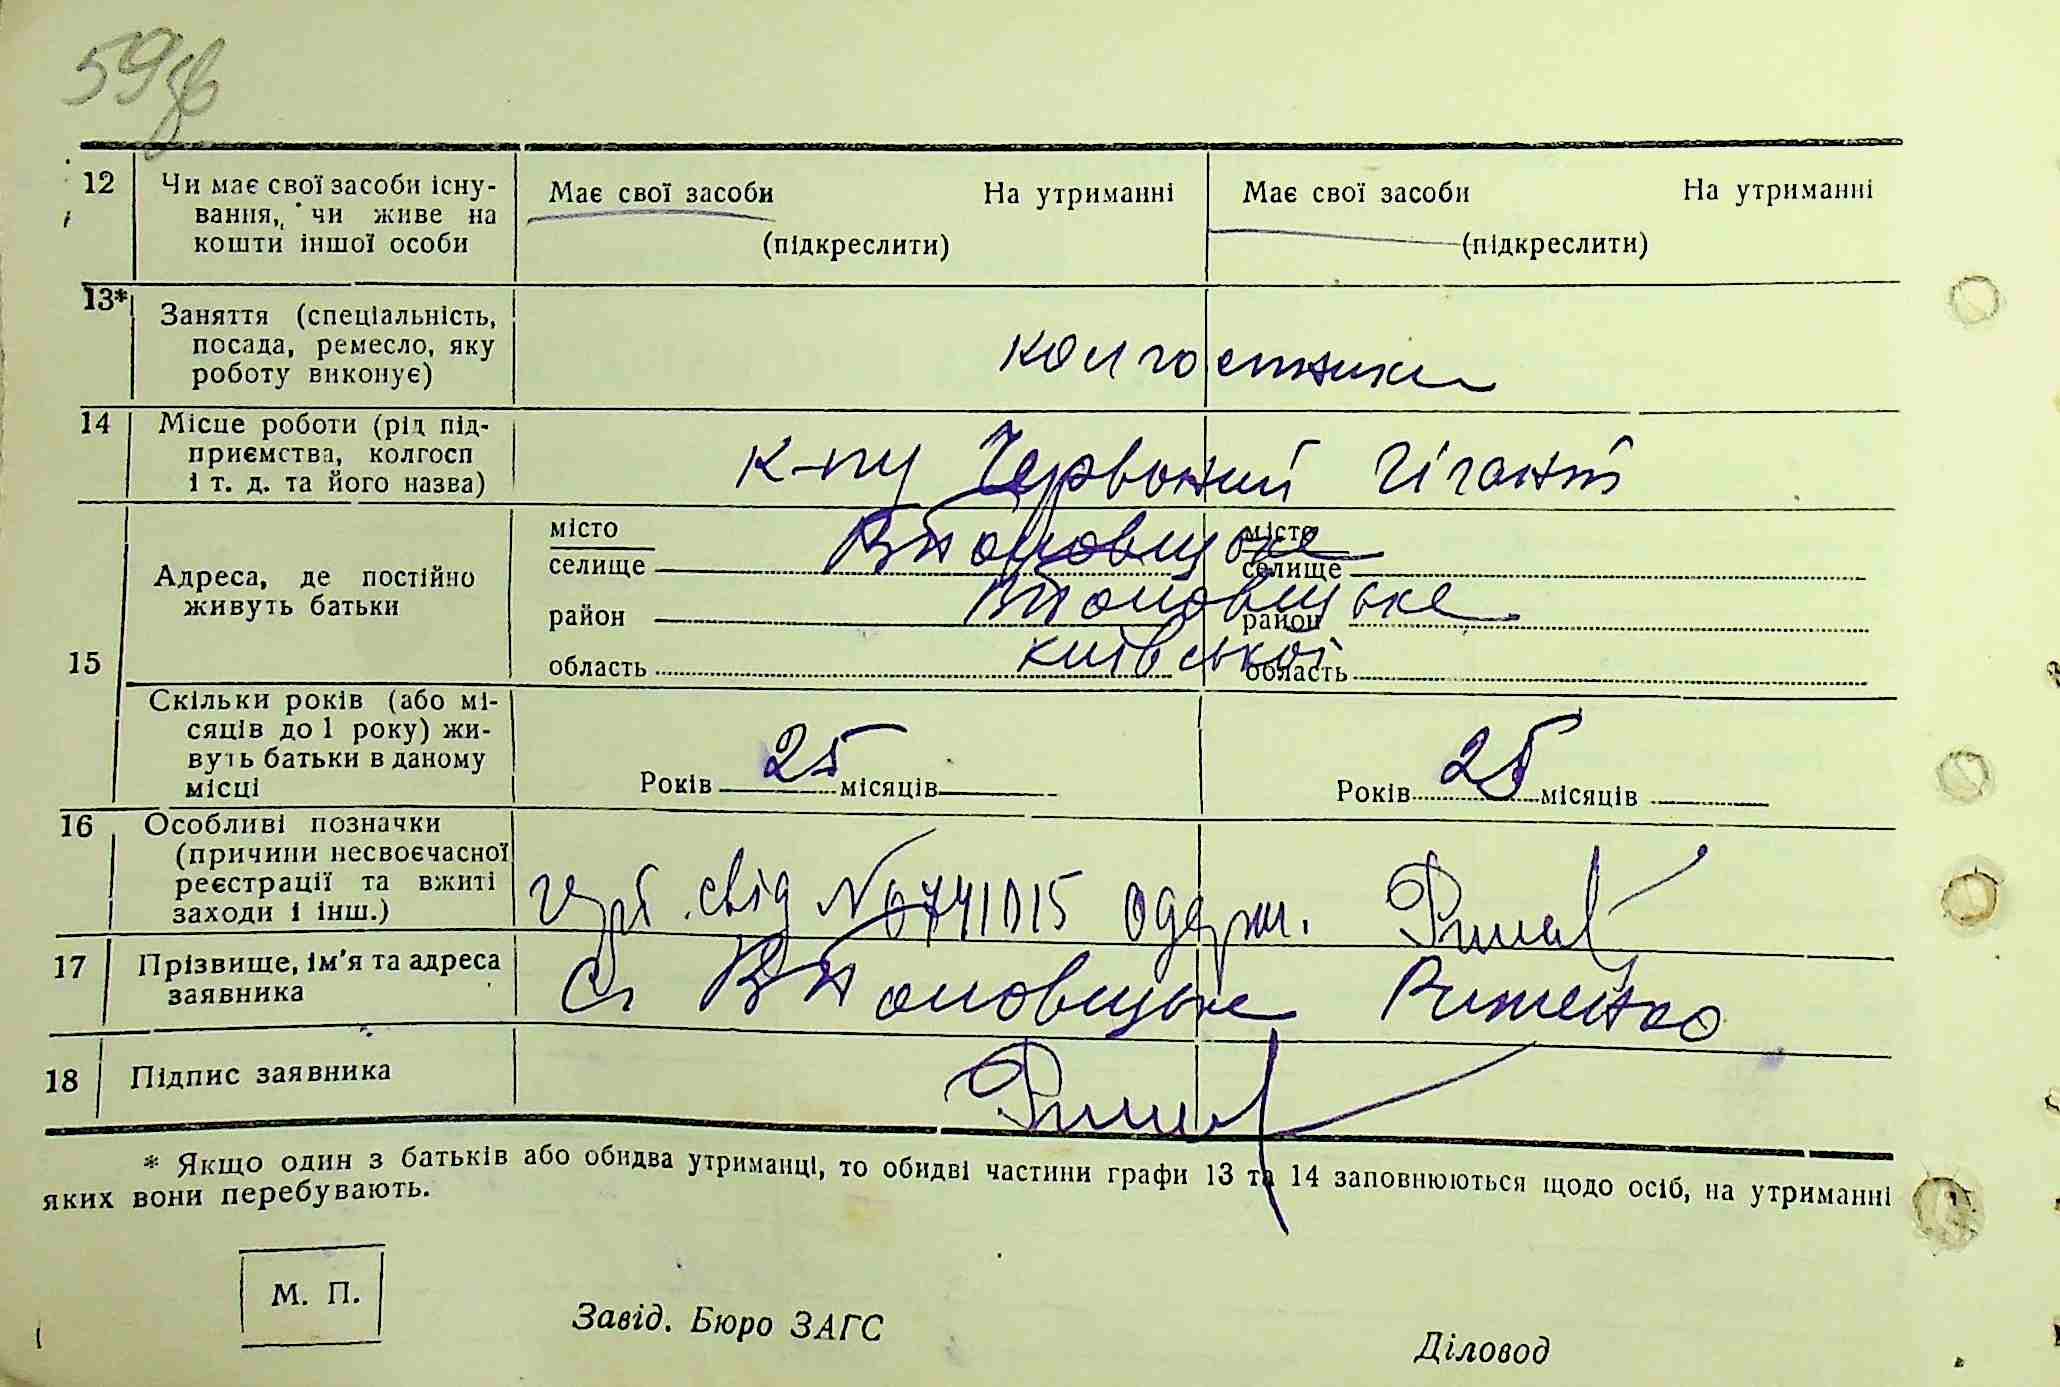 59зв
12 Чи має свої засоби існу-
вання, чи живе на
кошти іншої особи
Має свої засоби На утриманні Має свої засоби На утриманні
(підкреслити) (підкреслити)
13* Заняття (спеціальність,
посада, ремесло, яку
роботу виконує)
колгоспники
14 Місце роботи (рід під-
приємства, колгосп
і т. д. та його назва)
Червоний Гігант
15 Адреса, де постійно
живуть батьки
місто місто
селище селище
район район
область Київської область
Скільки років (або мі-
сяців до 1 року) жи-
вуть батьки в даному
місці
Років 25 місяців Років 25 місяців
16 Особливі позначки
(причини несвоєчасної
реєстрації та вжиті
заходи і інш.)
свід № 0741015 одерж.
17 Прізвище, ім'я та адреса
заявника
с. Риженко
18 Підпис заявника
* Якщо один з батьків або обидва утриманці, то обидві частини графи 13 та 14 заповнюються щодо осіб, на утриманні
яких вони перебувають.
М. П.
Завід. Бюро ЗАГС
Діловод